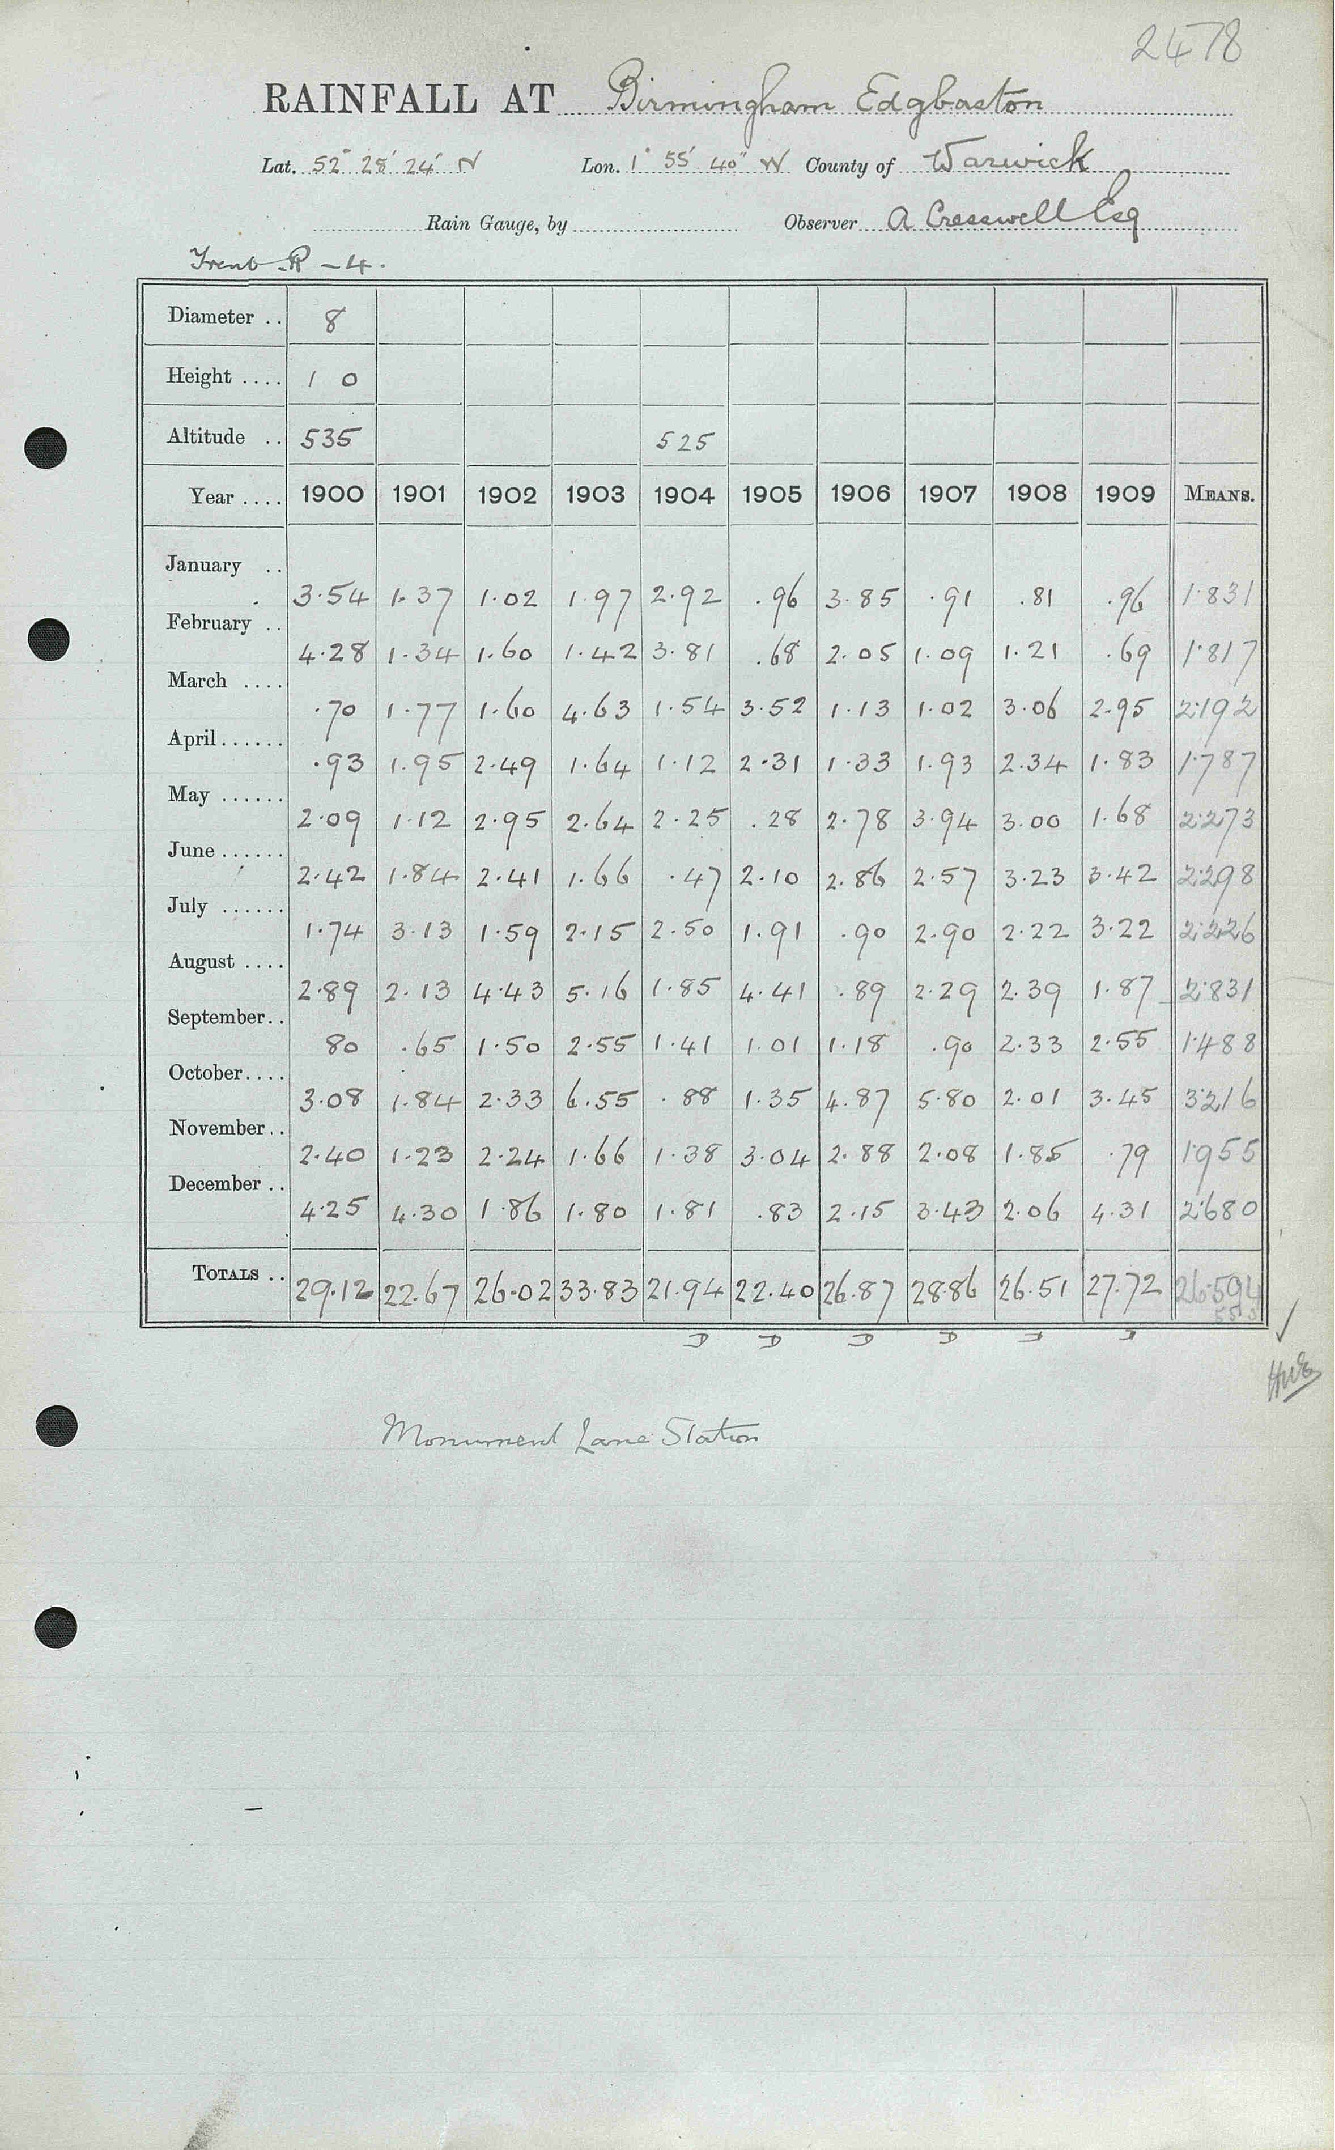 2478
RAINFALL AT Birmingham Edgbaston
Lat. 52° 28' 24" N Lon. 1° 55' 40" W County of Warwick
Rain Gauge, by Observer A Cresswell Esq
Trent R - 4.
Diameter .. 8
Height .... 1 0
Altitude .. 535 525
Year .... 1900 1901 1902 1903 1904 1905 1906 1907 1908 1909 MEANS.
January .. 3.54 1.37 1.02 1.97 2.92 .96 3.85 .91 .81 .96 1.831
February .. 4.28 1.34 1.60 1.42 3.81 .68 2.05 1.09 1.21 .69 1.817
March .... .70 1.77 1.60 4.63 1.54 3.52 1.13 1.02 3.06 2.95 2.192
April...... .93 1.95 2.49 1.64 1.12 2.31 1.33 1.93 2.34 1.83 1.787
May ...... 2.09 1.12 2.95 2.64 2.25 .28 2.78 3.94 3.00 1.68 2.273
June ...... 2.42 1.84 2.41 1.66 .47 2.10 2.86 2.57 3.23 3.42 2.298
July ...... 1.74 3.13 1.59 2.15 2.50 1.91 .90 2.90 2.22 3.22 2.226
August .... 2.89 2.13 4.43 5.16 1.85 4.41 .89 2.29 2.39 1.87 2.831
September.. 80 .65 1.50 2.55 1.41 1.01 1.18 .90 2.33 2.55 1.488
October.... 3.08 1.84 2.33 6.55 .88 1.35 4.87 5.80 2.01 3.45 3.216
November.. 2.40 1.23 2.24 1.66 1.38 3.04 2.88 2.08 1.85 .79 1.955
December .. 4.25 4.30 1.86 1.80 1.81 .83 2.15 3.43 2.06 4.31 2.680
TOTALS .. 29.12 22.67 26.02 33.83 21.94 22.40 26.87 28.86 26.51 27.72 26.594
Monument Lane Station